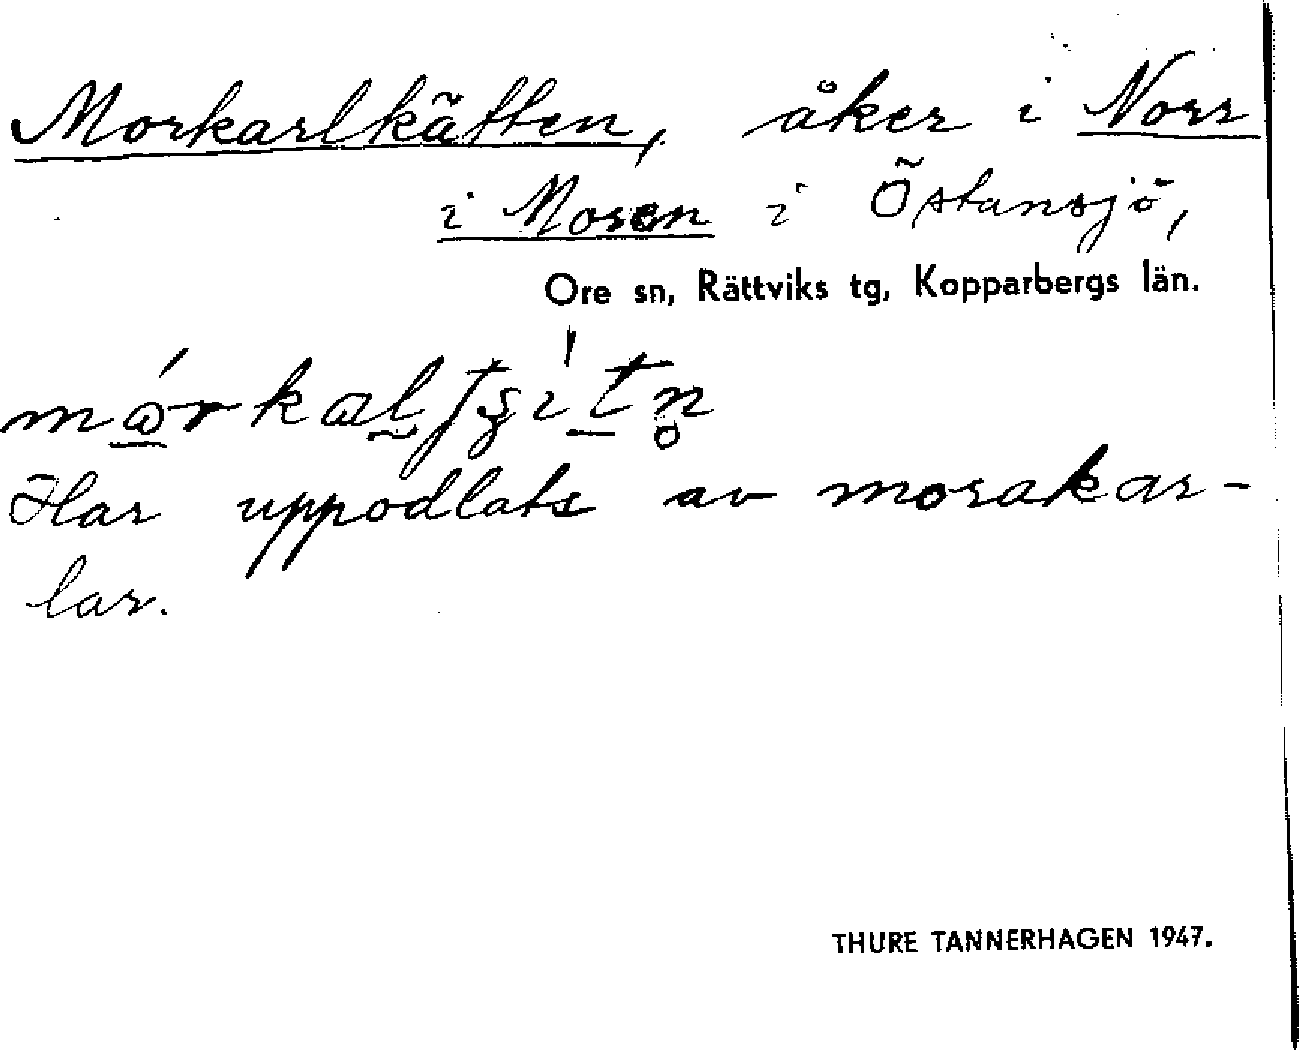 Morkarlkätten, åker i Norr
i Moren i Östansjö,
Ore sn, Rättviks tg, Kopparbergs län.
Har uppodlats av morakar-
lar.
THURE TANNERHAGEN 1947.